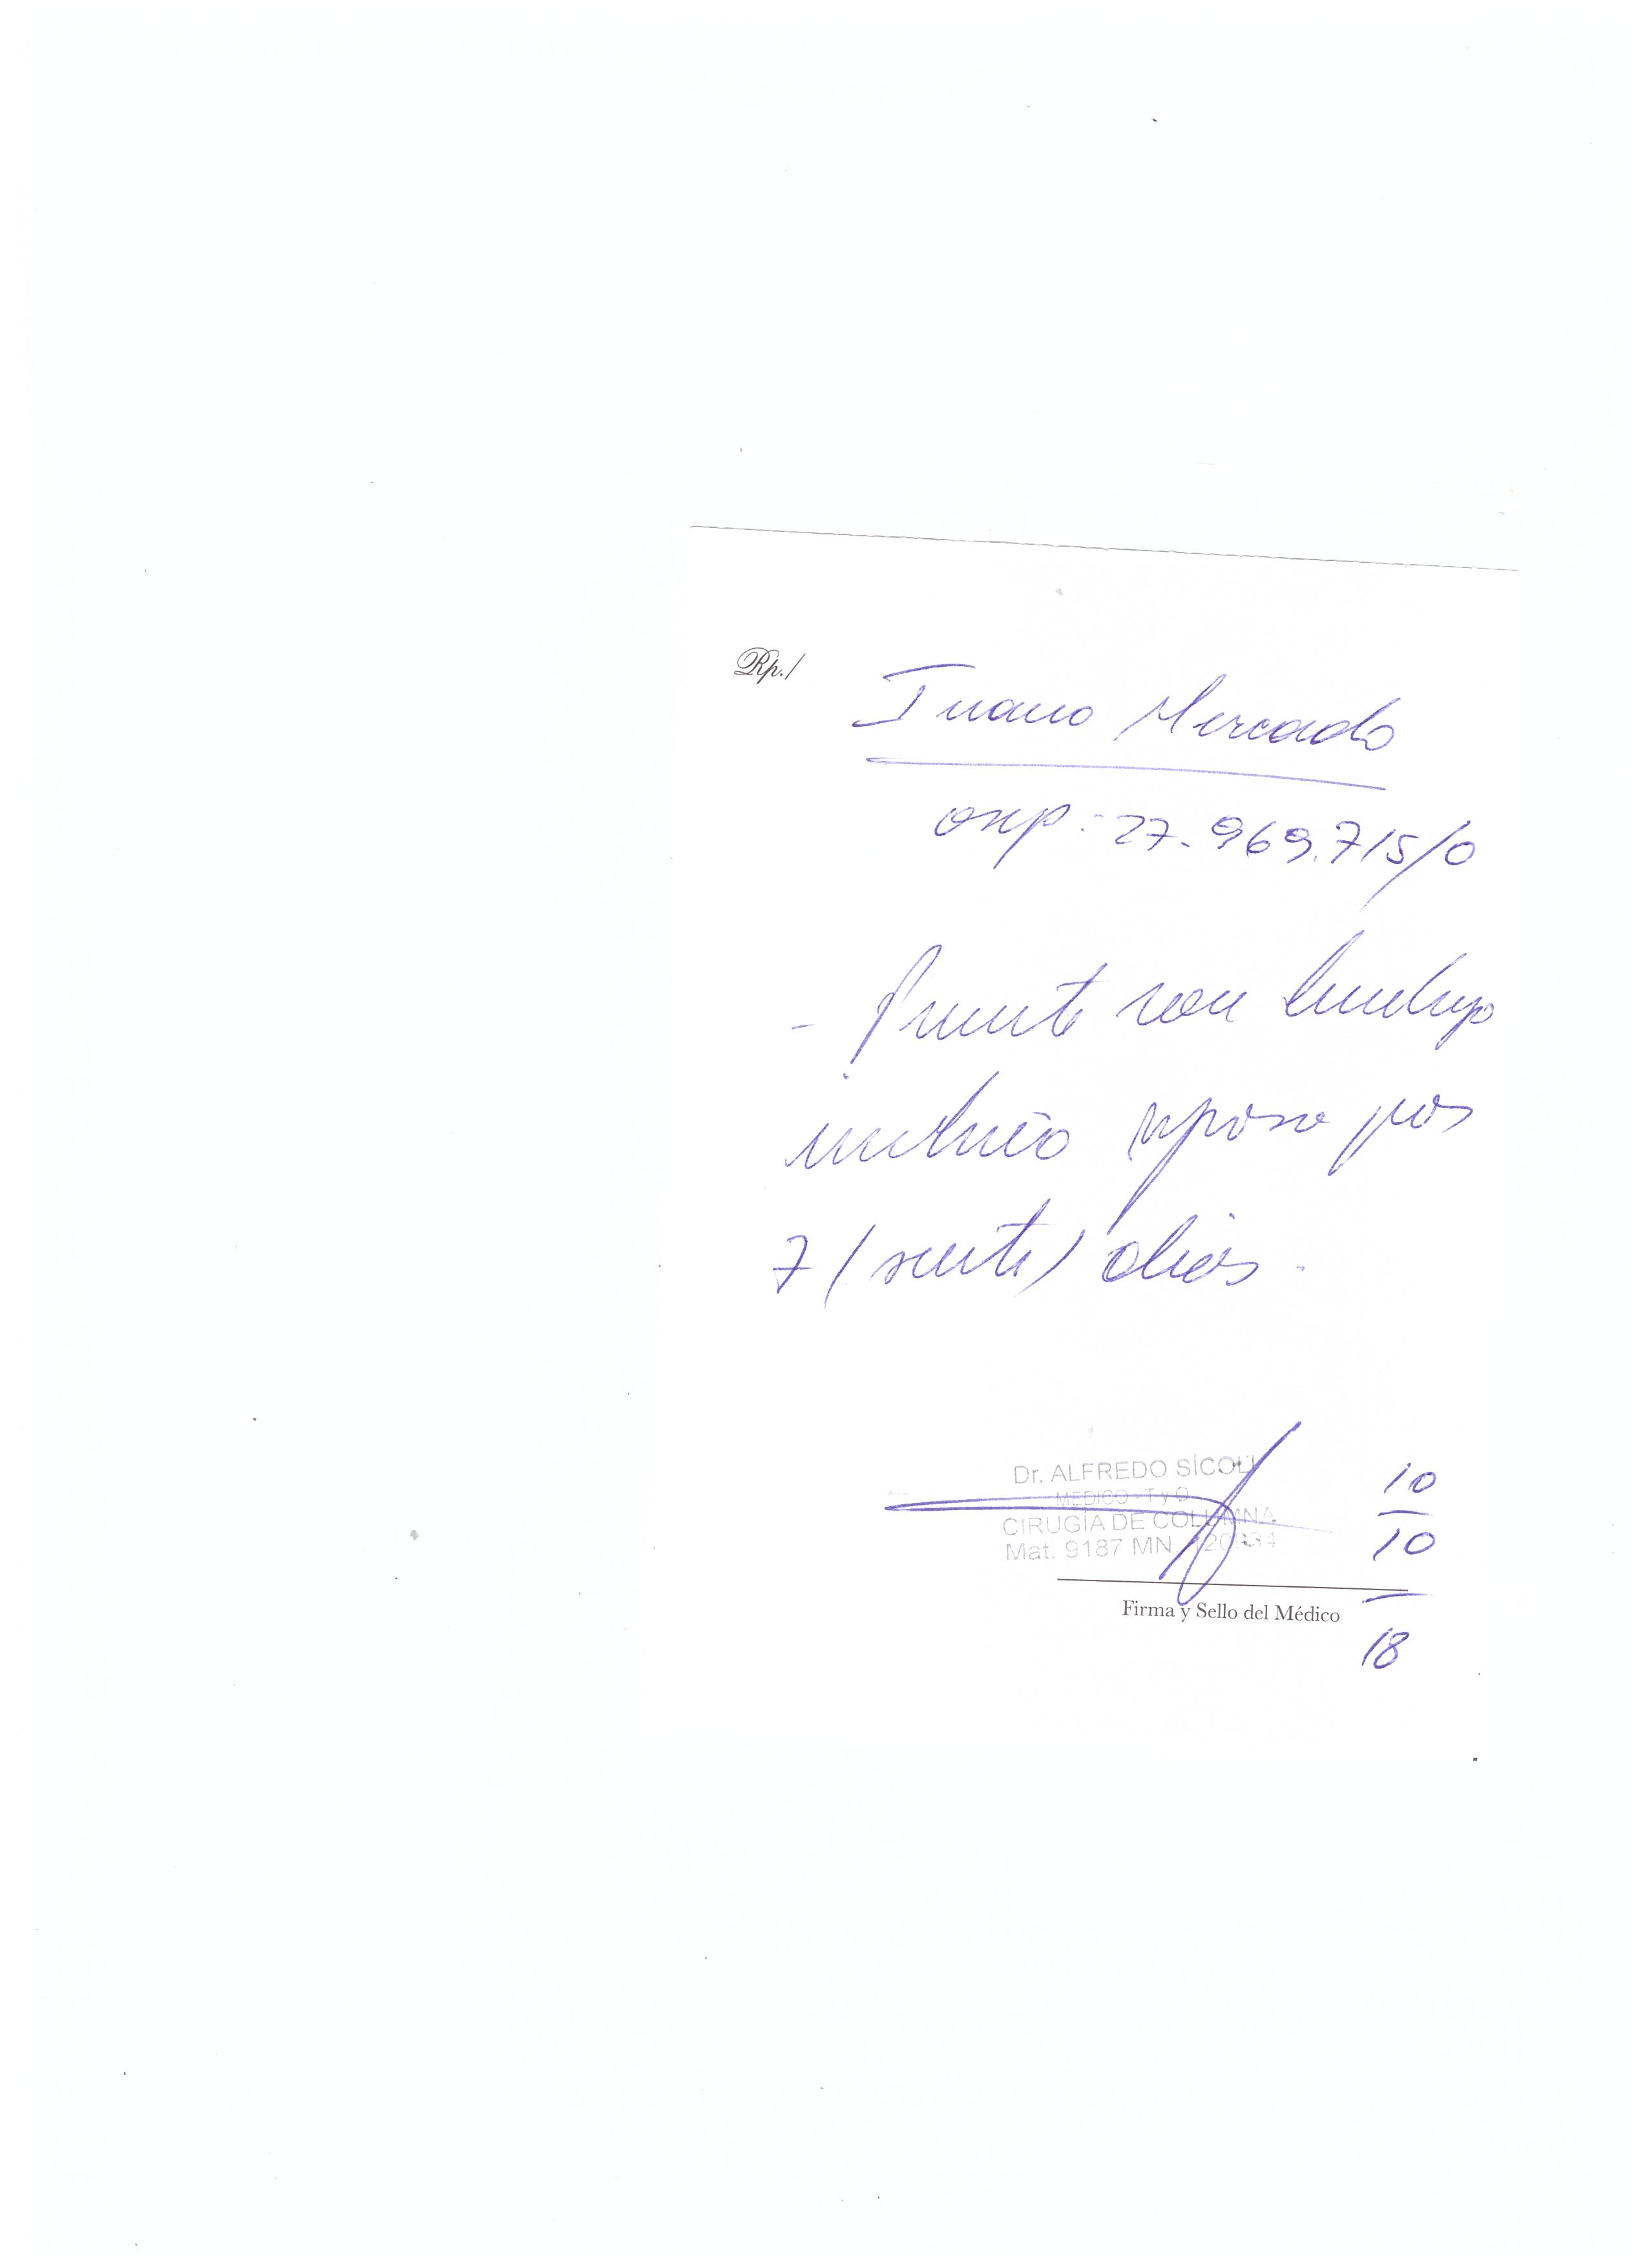 Rp./
Mercado
osep: 27.969.715/0
- Pacte con lumbalgia
indico reposo por
7 (siete) días.
Dr. ALFREDO SÍCOLI
MEDICO - T y O
CIRUGÍA DE COLUMNA
Mat. 9187 MN
10
10
18
Firma y Sello del Médico